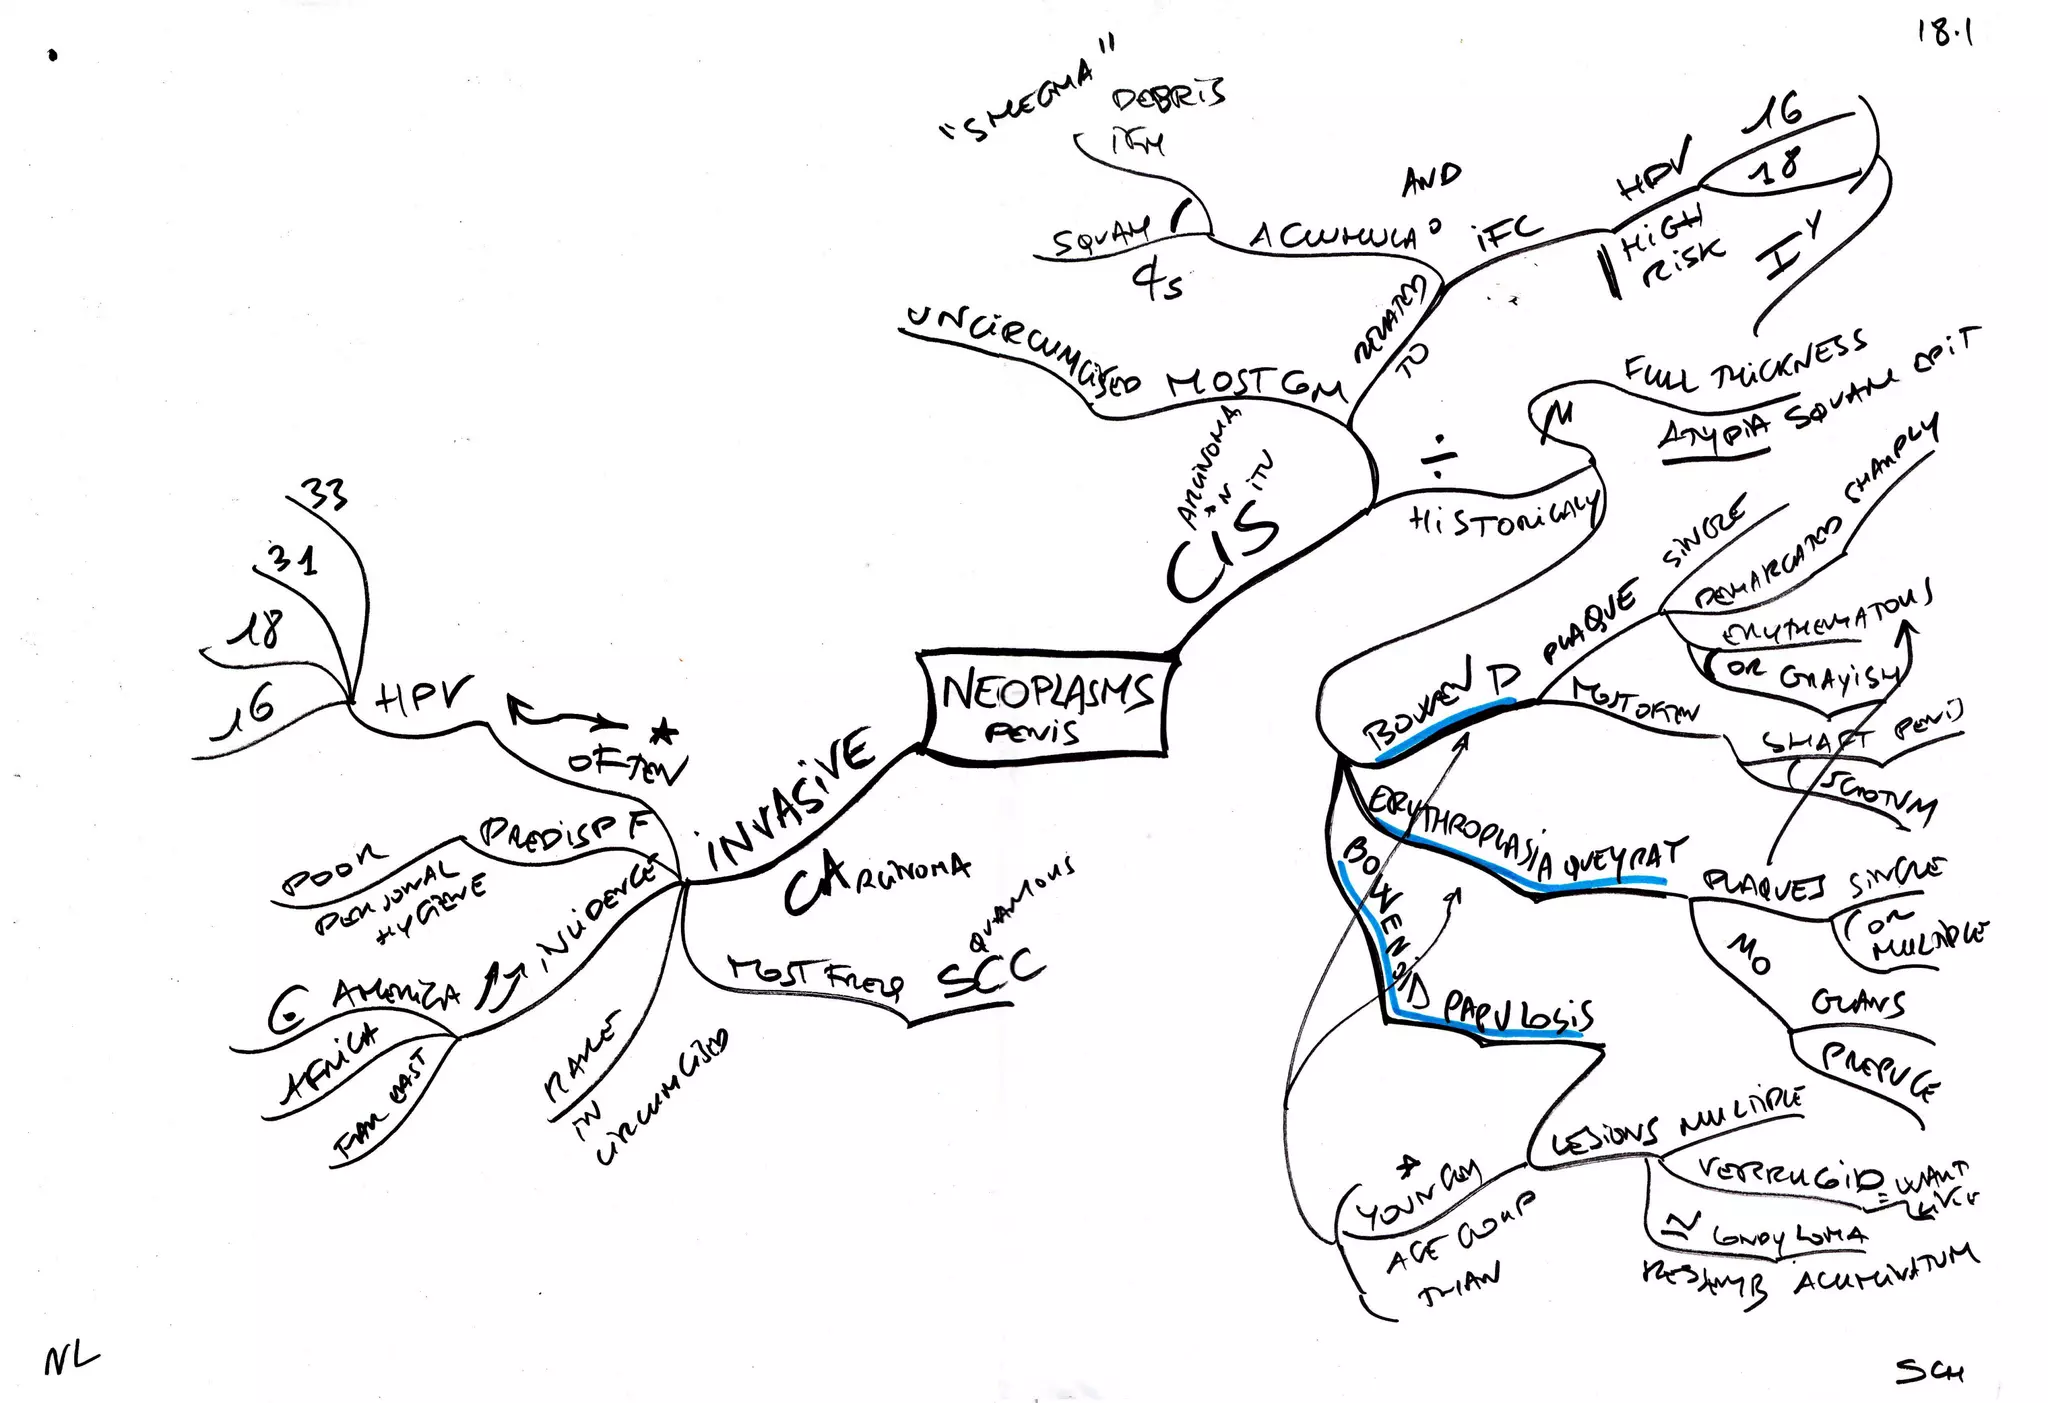 18.1
"SMEGMA"
DEBRIS
SQUAM
UNCIRCUMCISED MOST COM
ACUMULA°
AND
IFC
HPV
16
18
HIGH
RISK
RELATED
TO
CIS
ARCINOMA
IN
ITU
÷
HISTORICALY
M
FULL THICKNESS
ATYPIA SQUAM EPIT
BOWEN D
PLAQUE
SINGLE
DEMARCATED SHARPLY
ERYTHEMATOUS
OR GRAYISH
MOST OFTEN
SHAFT PENIS
SCROTUM
ERYTHROPLASIA QUEYRAT
PLAQUES SINGLE
OR
MULTIPLE
MO
GLANS
PREPUCE
BOWENOID PAPULOSIS
LESIONS MULTIPLE
VERRUCOID = WART
LIKE
≃ CONDYLOMA
ACUMINATUM
YOUNGER
AGE GROUP
THAN
NEOPLASMS
PENIS
INVASIVE
CARCINOMA
OFTEN
HPV
33
31
18
16
PREDISP F
POOR
PERSONAL
HYGIENE
INCIDENCE
C AMERICA
AFRICA
FAR EAST
RARE
IN
CIRCUMCISED
MOST FREQ SCC
QUAMOUS
NL
SCH